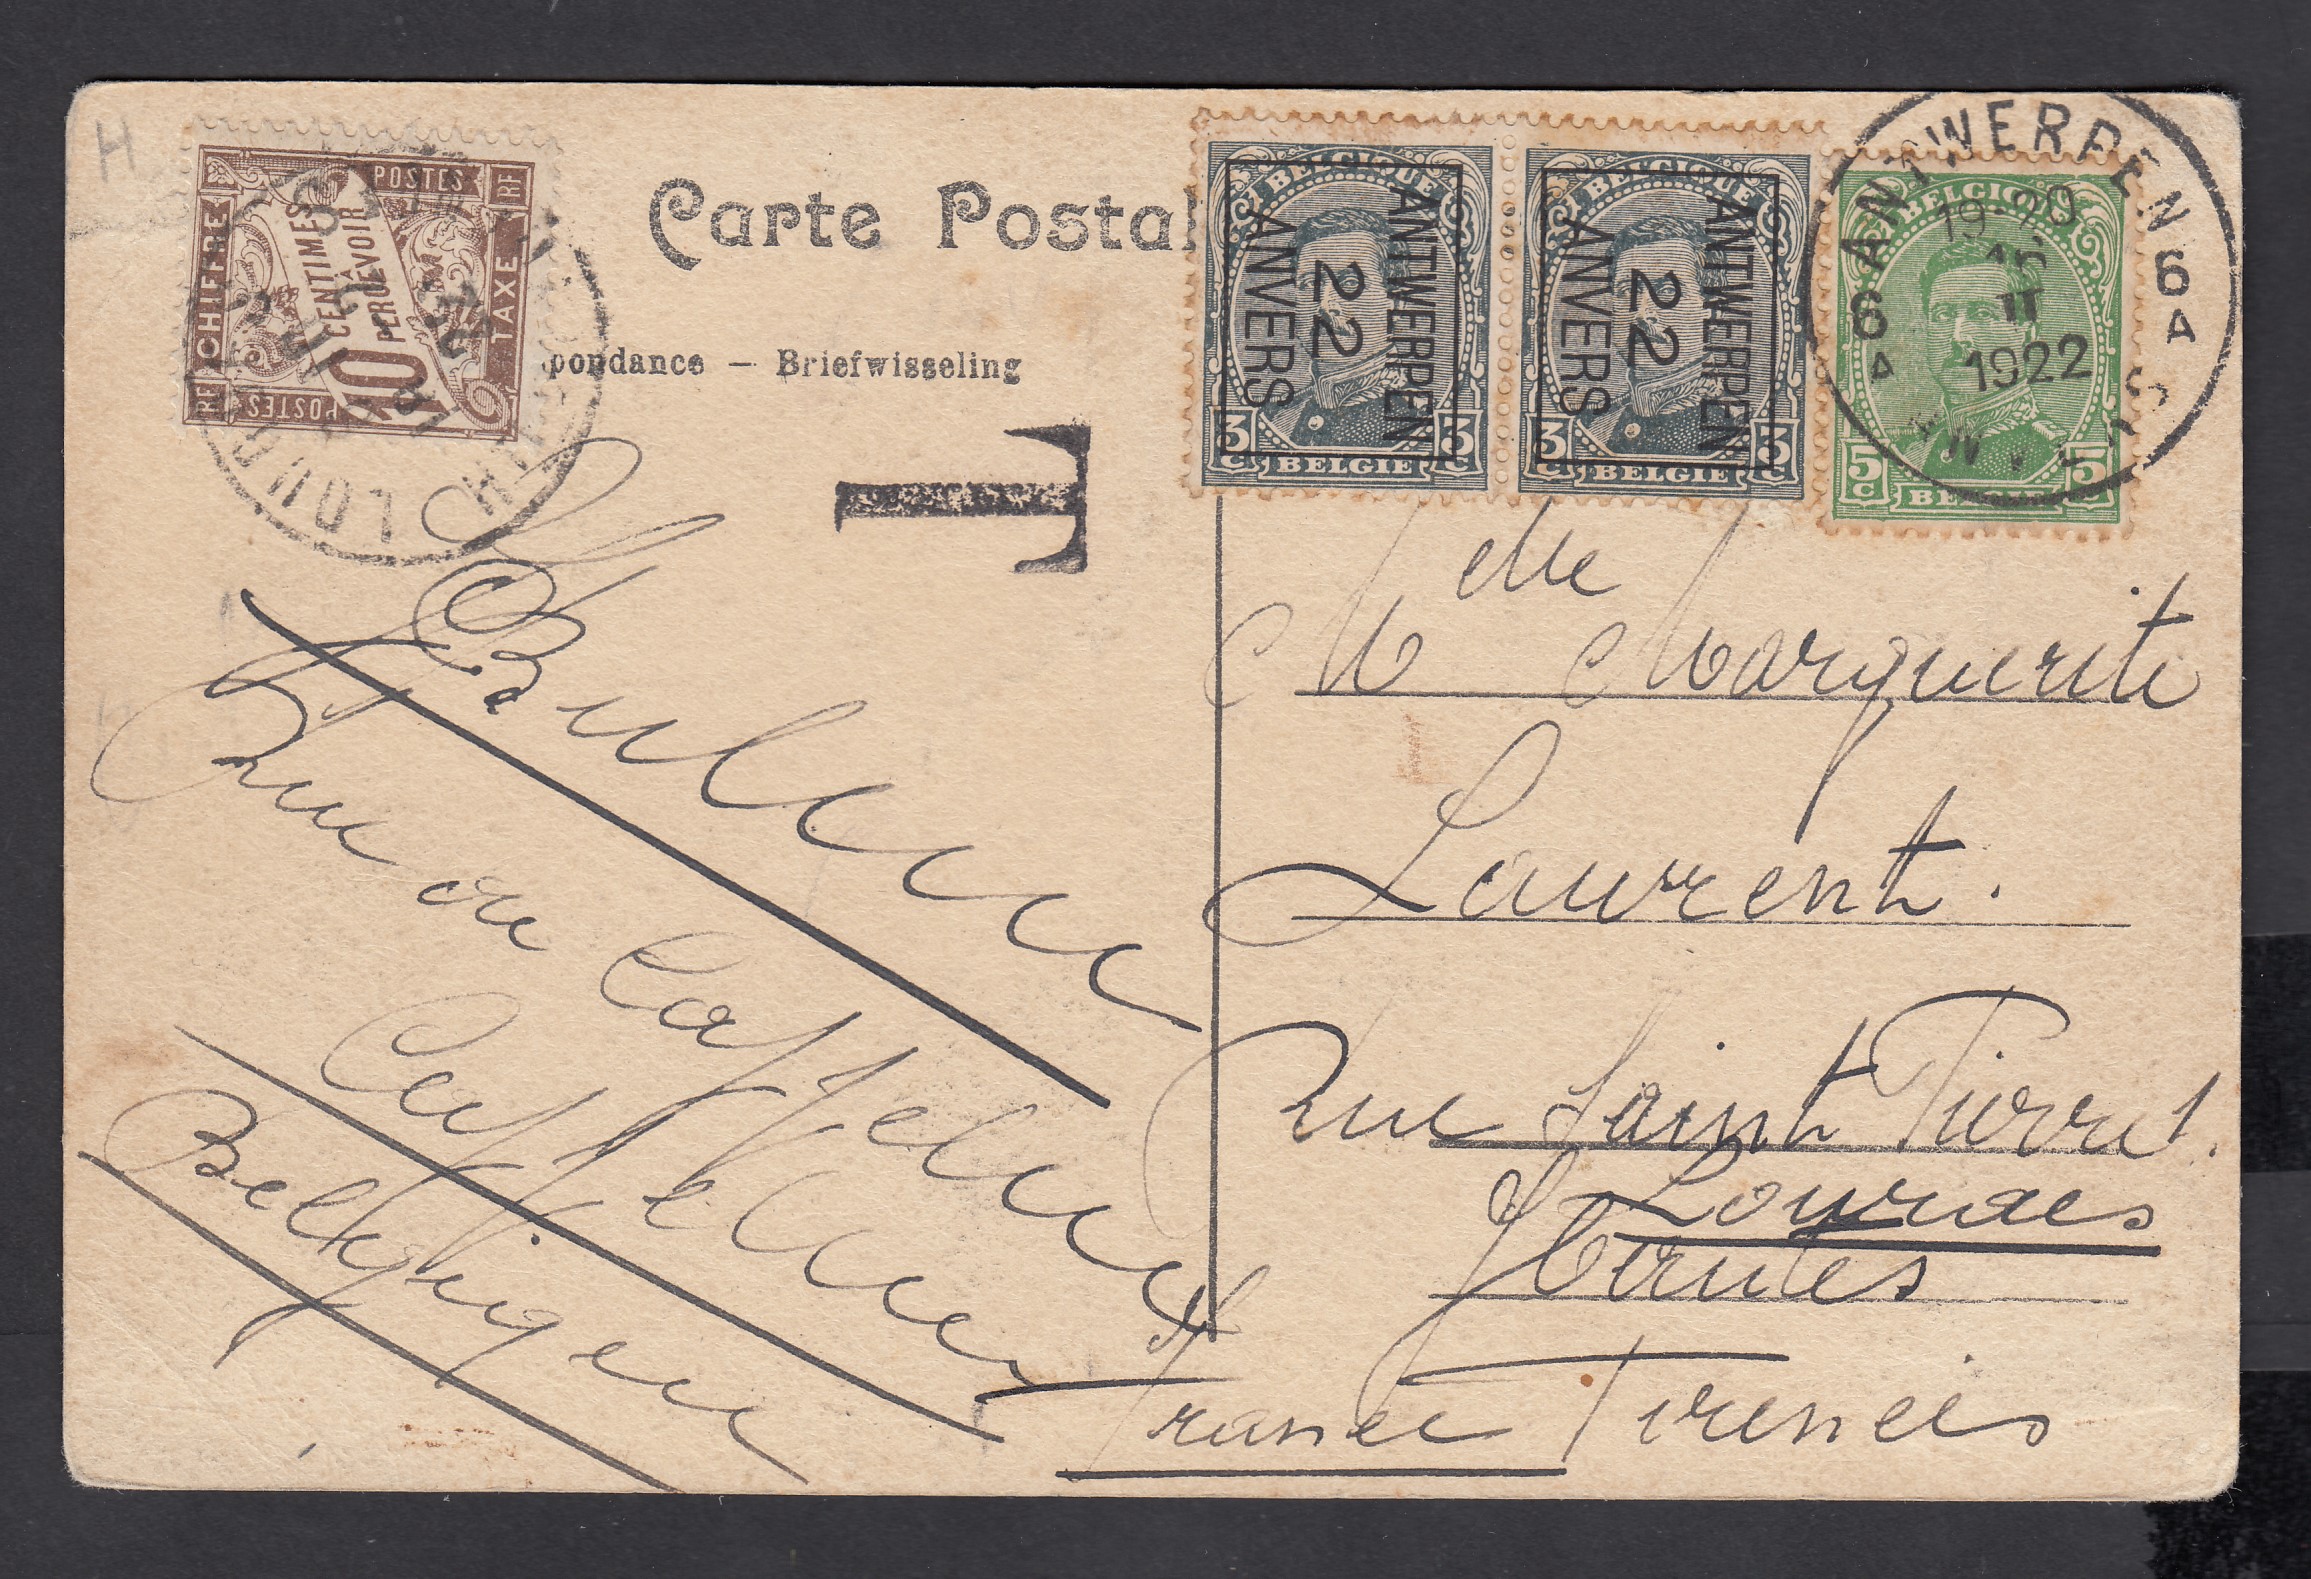 H
Carte Postal
pondance – Briefwisseling
RF POSTES RF
CHIFFRE TAXE
10 CENTIMES À PERCEVOIR
POSTES
LOURDES
BELGIQUE
ANTWERPEN
22
ANVERS
3 C BELGIE 3 C
BELGIQUE
ANTWERPEN
22
ANVERS
3 C BELGIE 3 C
BELGIQUE
5 C 5 C
ANTWERPEN
6 A 6 A
19-20
16
II
1922
T
Melle Marguerite
Laurent.
Rue Saint Pierre 1.
Lourdes
Htes
France Pirenees
Rue de Cappelen
Cappellen
Belgique